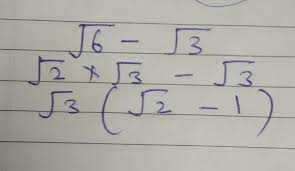 √6 - √3
√2 × √3 - √3
√3 (√2 - 1)